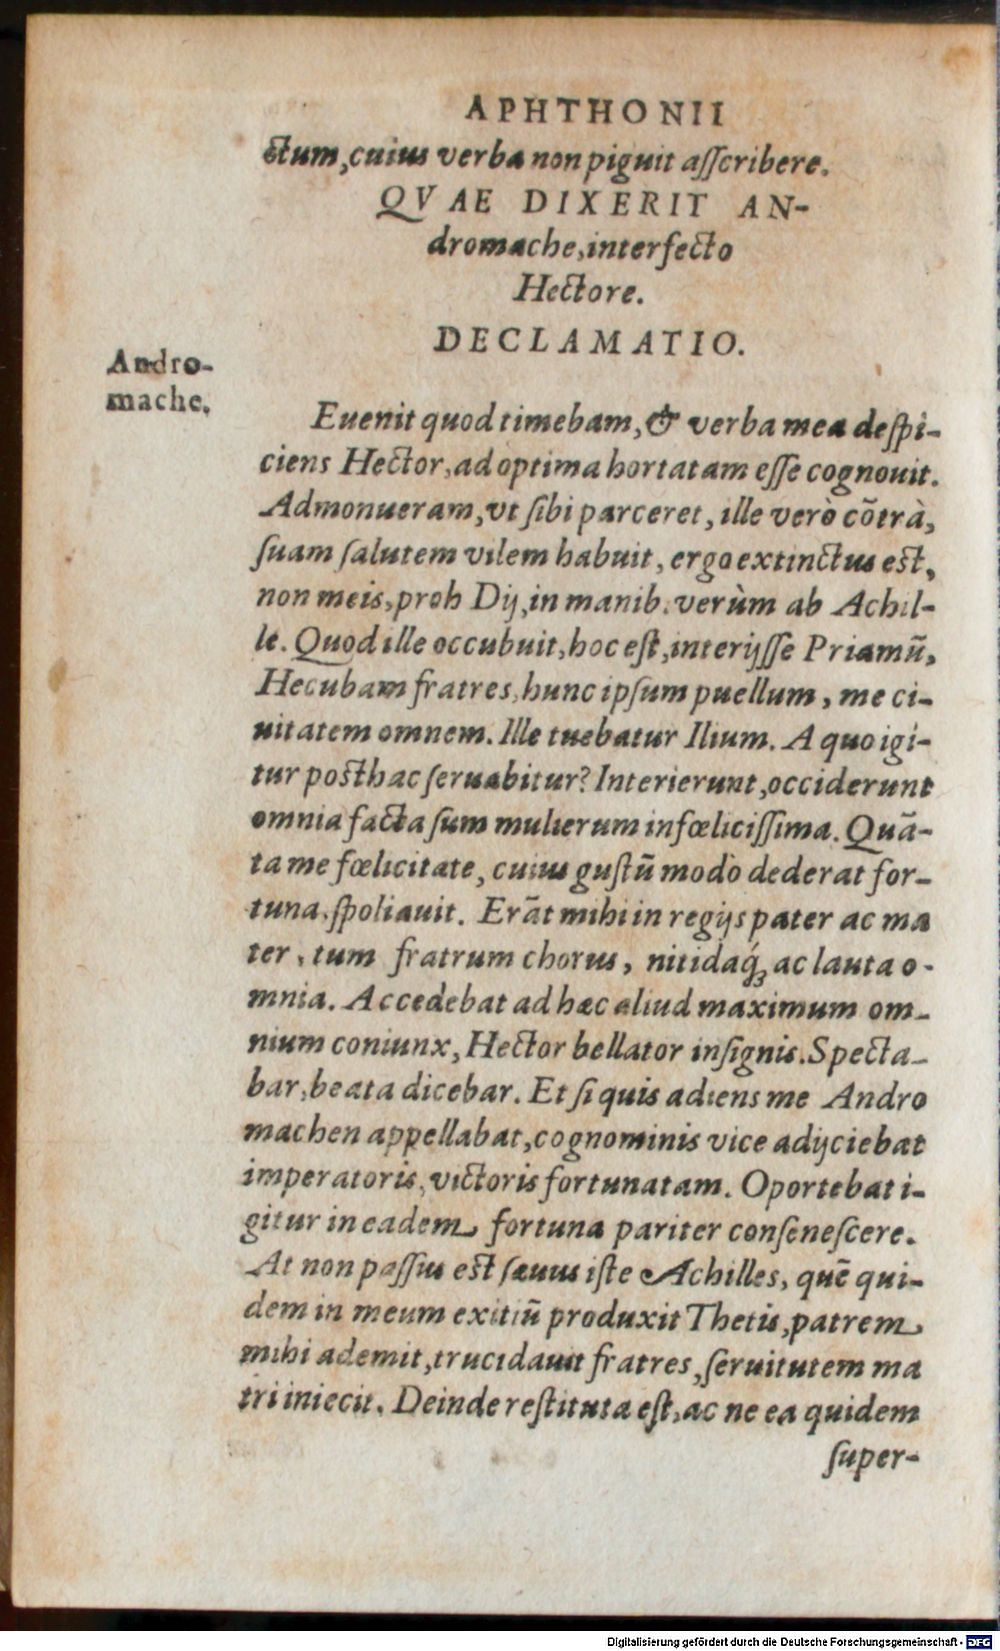 APHTHONII
ctum, cuius verba non piguit asscribere.
QVAE DIXERIT AN-
dromache, interfecto
Hectore.
DECLAMATIO.
Andro-
mache.
Euenit quod timebam, & verba mea despi-
ciens Hector, ad optima hortatam esse cognouit.
Admonueram, vt sibi parceret, ille verò cõtrà,
suam salutem vilem habuit, ergo extinctus est,
non meis, proh Dij, in manib. verùm ab Achil-
le. Quod ille occubuit, hoc est, interijsse Priamũ,
Hecubam fratres, hunc ipsum puellum, me ci-
uitatem omnem. Ille tuebatur Ilium. A quo igi-
tur posthac seruabitur? Interierunt, occiderunt
omnia facta sum mulierum infœlicissima. Quã-
ta me fœlicitate, cuius gustũ modò dederat for-
tuna, spoliauit. Erãt mihi in regijs pater ac ma
ter, tum fratrum chorus, nitidaq́; ac lauta o-
mnia. Accedebat ad hæc aliud maximum om-
nium coniunx, Hector bellator insignis. Specta-
bar, beata dicebar. Et si quis adiens me Andro
machen appellabat, cognominis vice adijciebat
imperatoris, victoris fortunatam. Oportebat i-
gitur in eadem fortuna pariter consenescere.
At non passus est sæuus iste Achilles, quẽ qui-
dem in meum exitiũ produxit Thetis, patrem
mihi ademit, trucidauit fratres, seruitutem ma
tri iniecit. Deinde restituta est, ac ne ea quidem
super-
Digitalisierung gefördert durch die Deutsche Forschungsgemeinschaft - DFG